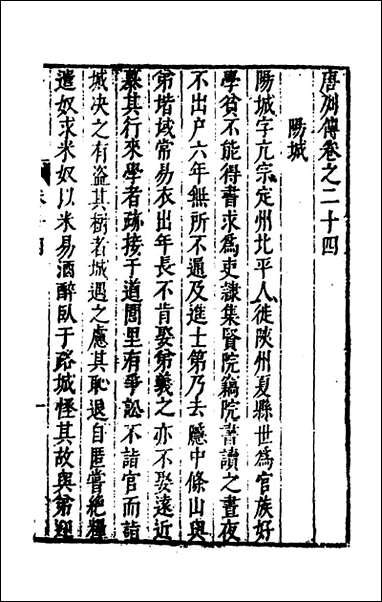 唐列傳卷之二十四
陽城
陽城字亢宗定州北平人徙陝州夏縣世爲官族好
學貧不能得書求爲吏隷集賢院竊院書讀之晝夜
不出户六年無所不通及進士第乃去隱中條山與
弟堦域常易衣出年長不肯娶弟義之亦不娶遠近
慕其行來學者跡接于道閭里有爭訟不詣官而詣
城决之有盗其樹者城遇之慮其恥退自匿嘗絶糧
遣奴求米奴以米易酒醉臥于路城怪其故與弟迎